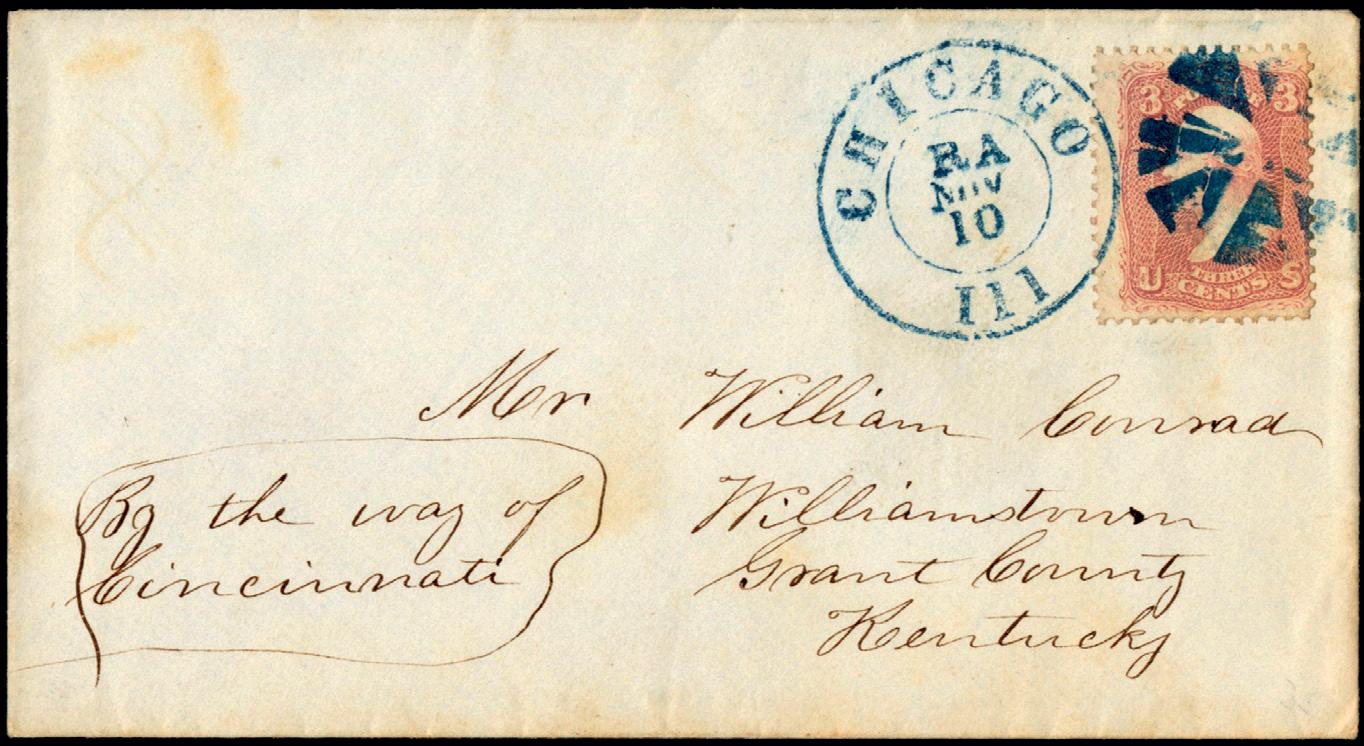 CHICAGO
RA
NOV
10
Ill
3 3
U S
THREE
CENTS
Mr William Conrad
By the way of
Cincinnati
Williamstown
Grant County
Kentucky